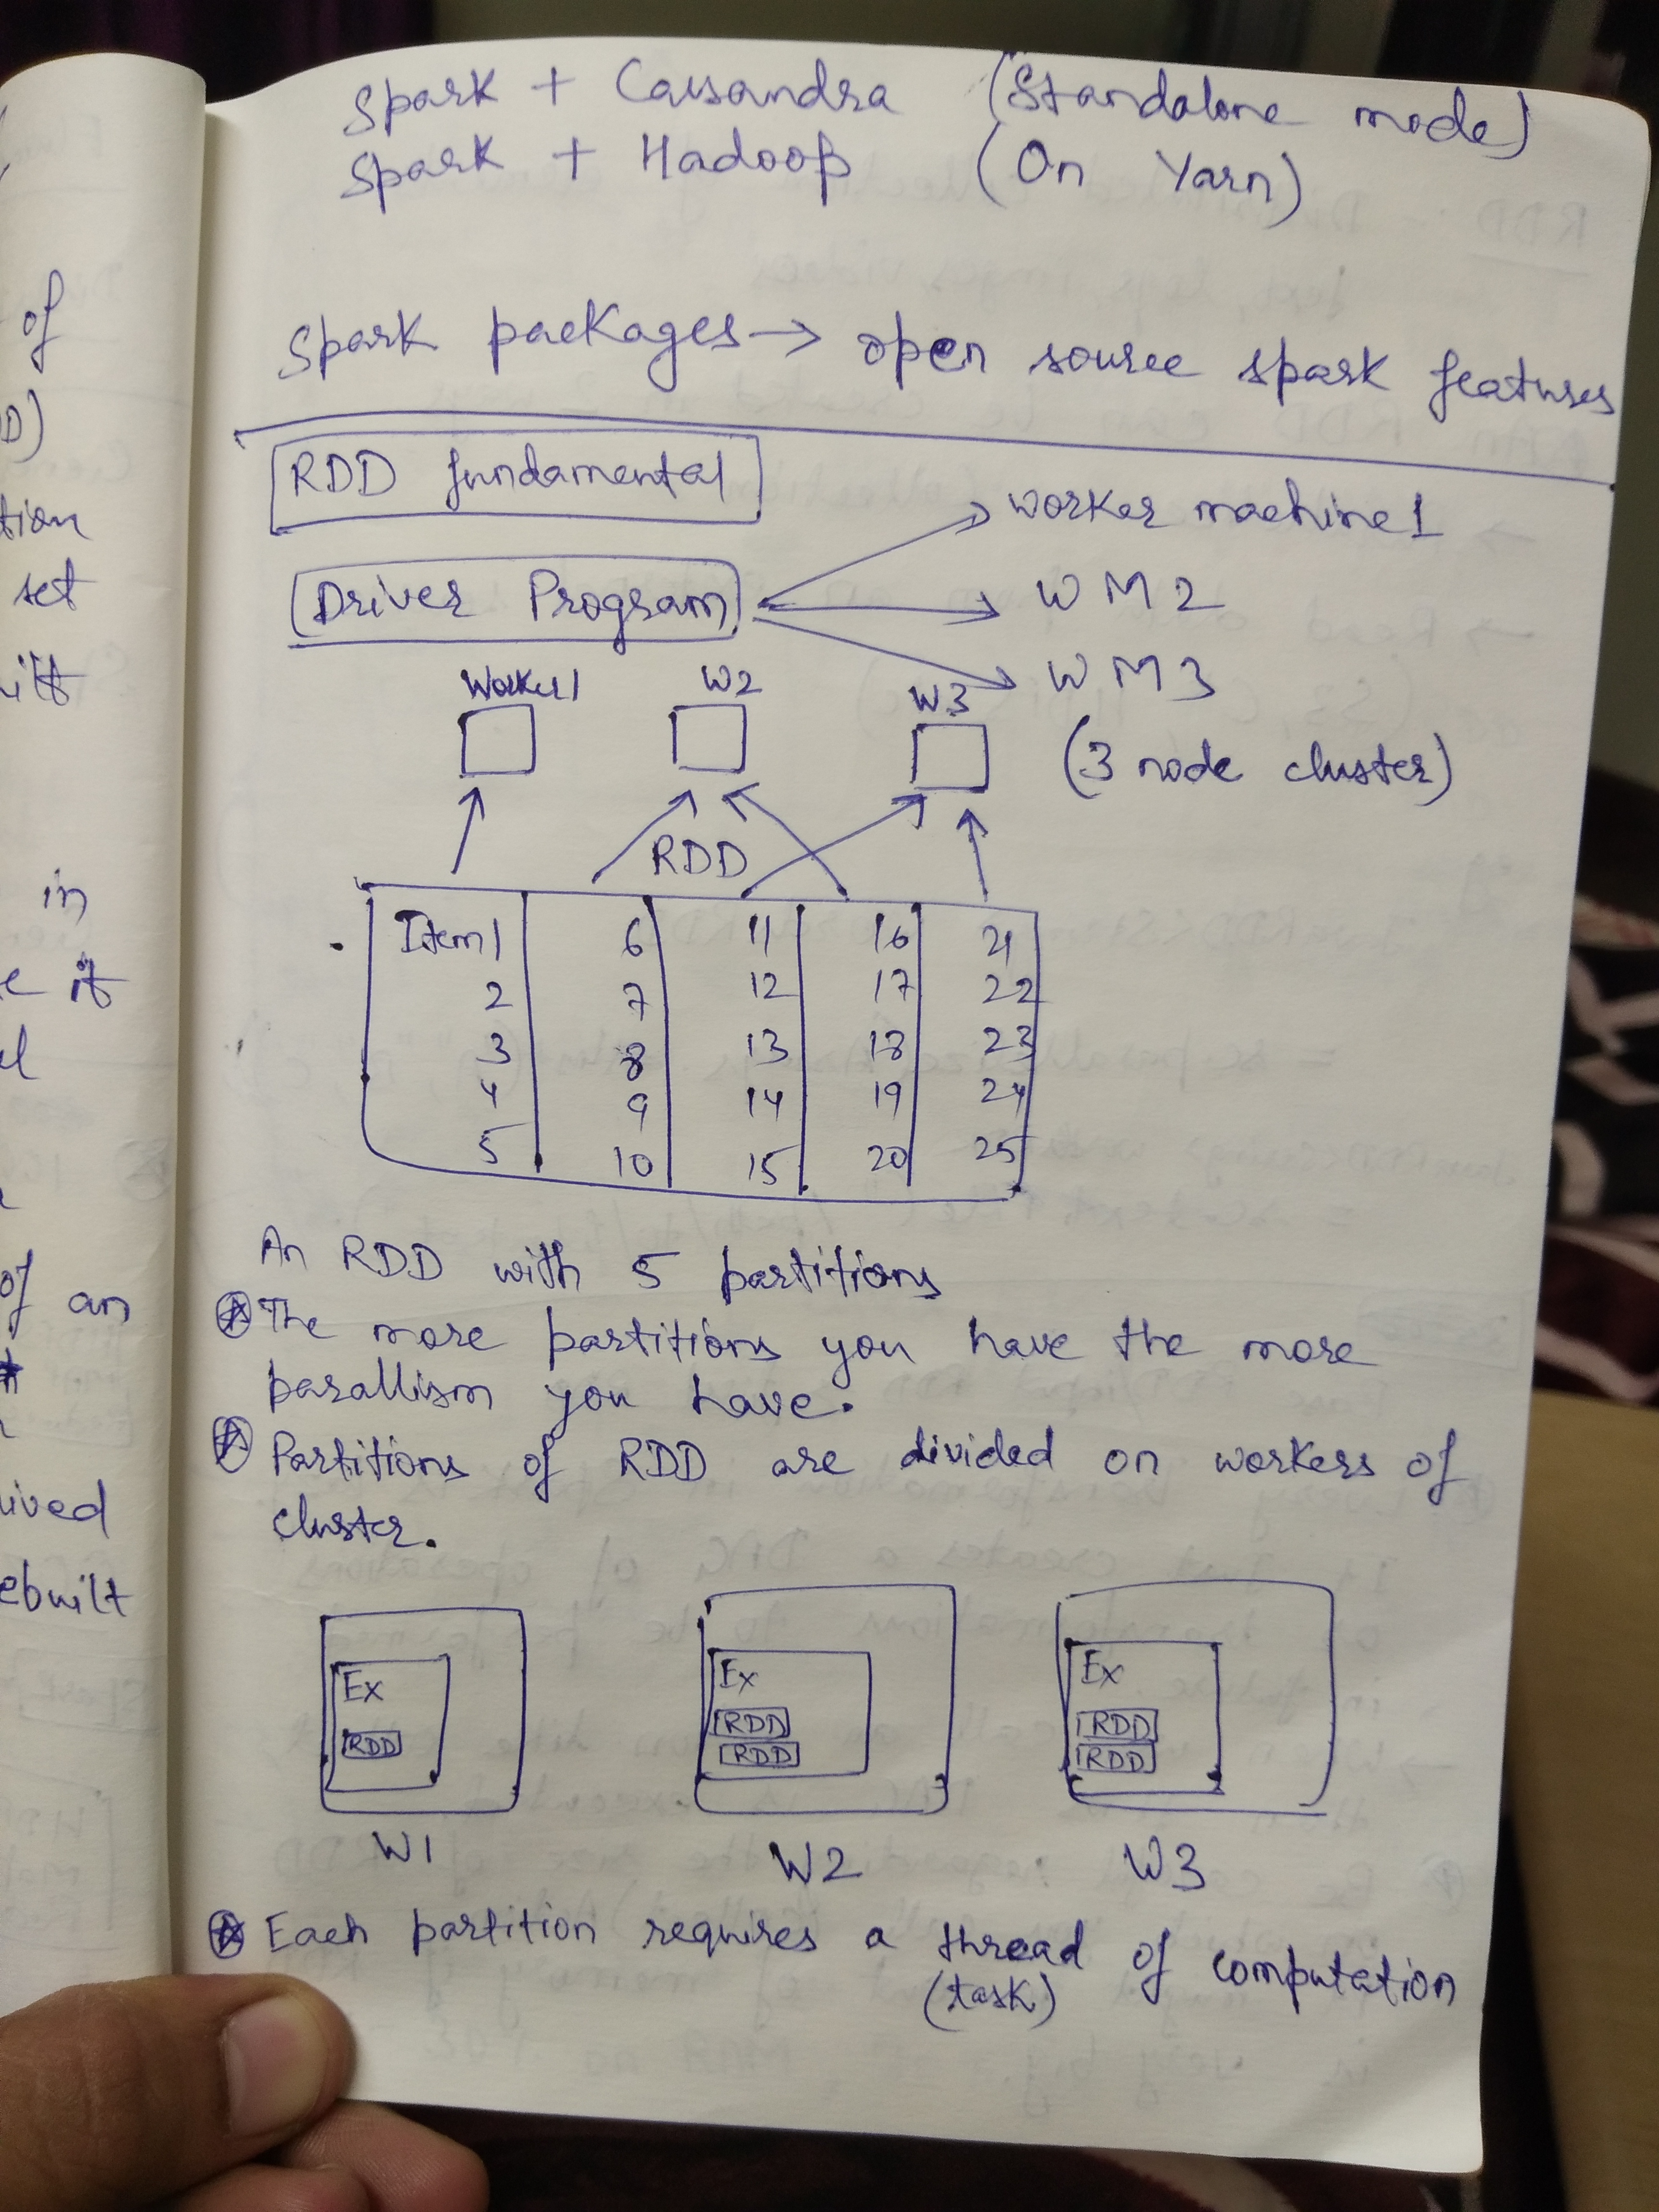 Spark + Cassandra (Standalone mode)
Spark + Hadoop (On Yarn)
Spark packages → open source spark features
RDD fundamental
Driver Program
worker machine 1
WM2
WM3
(3 node cluster)
Worker1 W2 W3
RDD
Item1 6 11 16 21
2 7 12 17 22
3 8 13 18 23
4 9 14 19 24
5 10 15 20 25
An RDD with 5 partitions
The more partitions you have the more
parallism you have.
Partitions of RDD are divided on workers of
cluster.
Ex Ex Ex
RDD RDD RDD
RDD RDD
W1 W2 W3
Each partition requires a thread of computation
(task)
of
D)
tion
set
uilt
in
e it
of an
uived
ebuilt